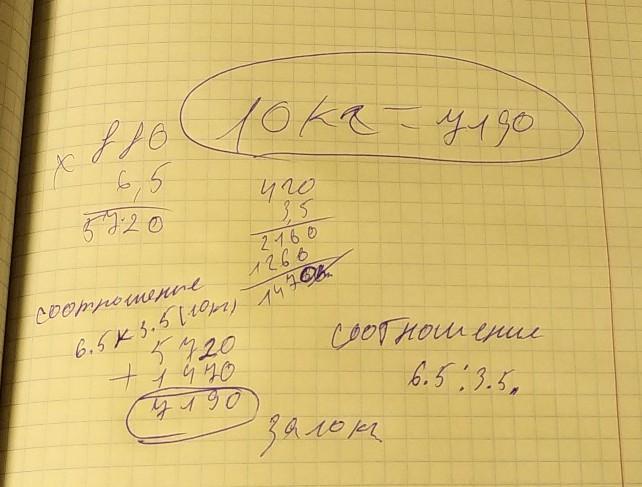 10кг = 7190
x 880
6,5
5720
420
3,5
2100
1260
1470
соотношение
6.5 к 3.5 (10кг)
5720
+ 1470
7190
за 10кг
соотношение
6.5 : 3.5